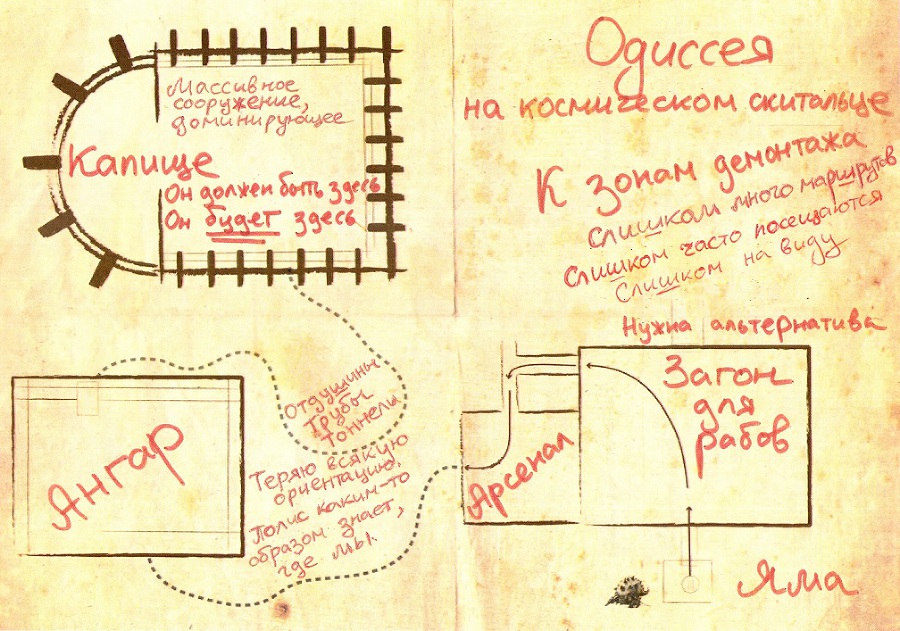 Одиссея
на космическом скитальце
Массивное
сооружение,
доминирующее
Капище
Он должен быть здесь
Он будет здесь
К зонам демонтажа
слишком много маршрутов
слишком часто посещаются
Слишком на виду
Нужна альтернатива
Загон
для
рабов
Отдушины
трубы
тоннели
Ангар
Теряю всякую
ориентацию.
Полис каким-то
образом знает,
где мы.
Арсенал
Яма